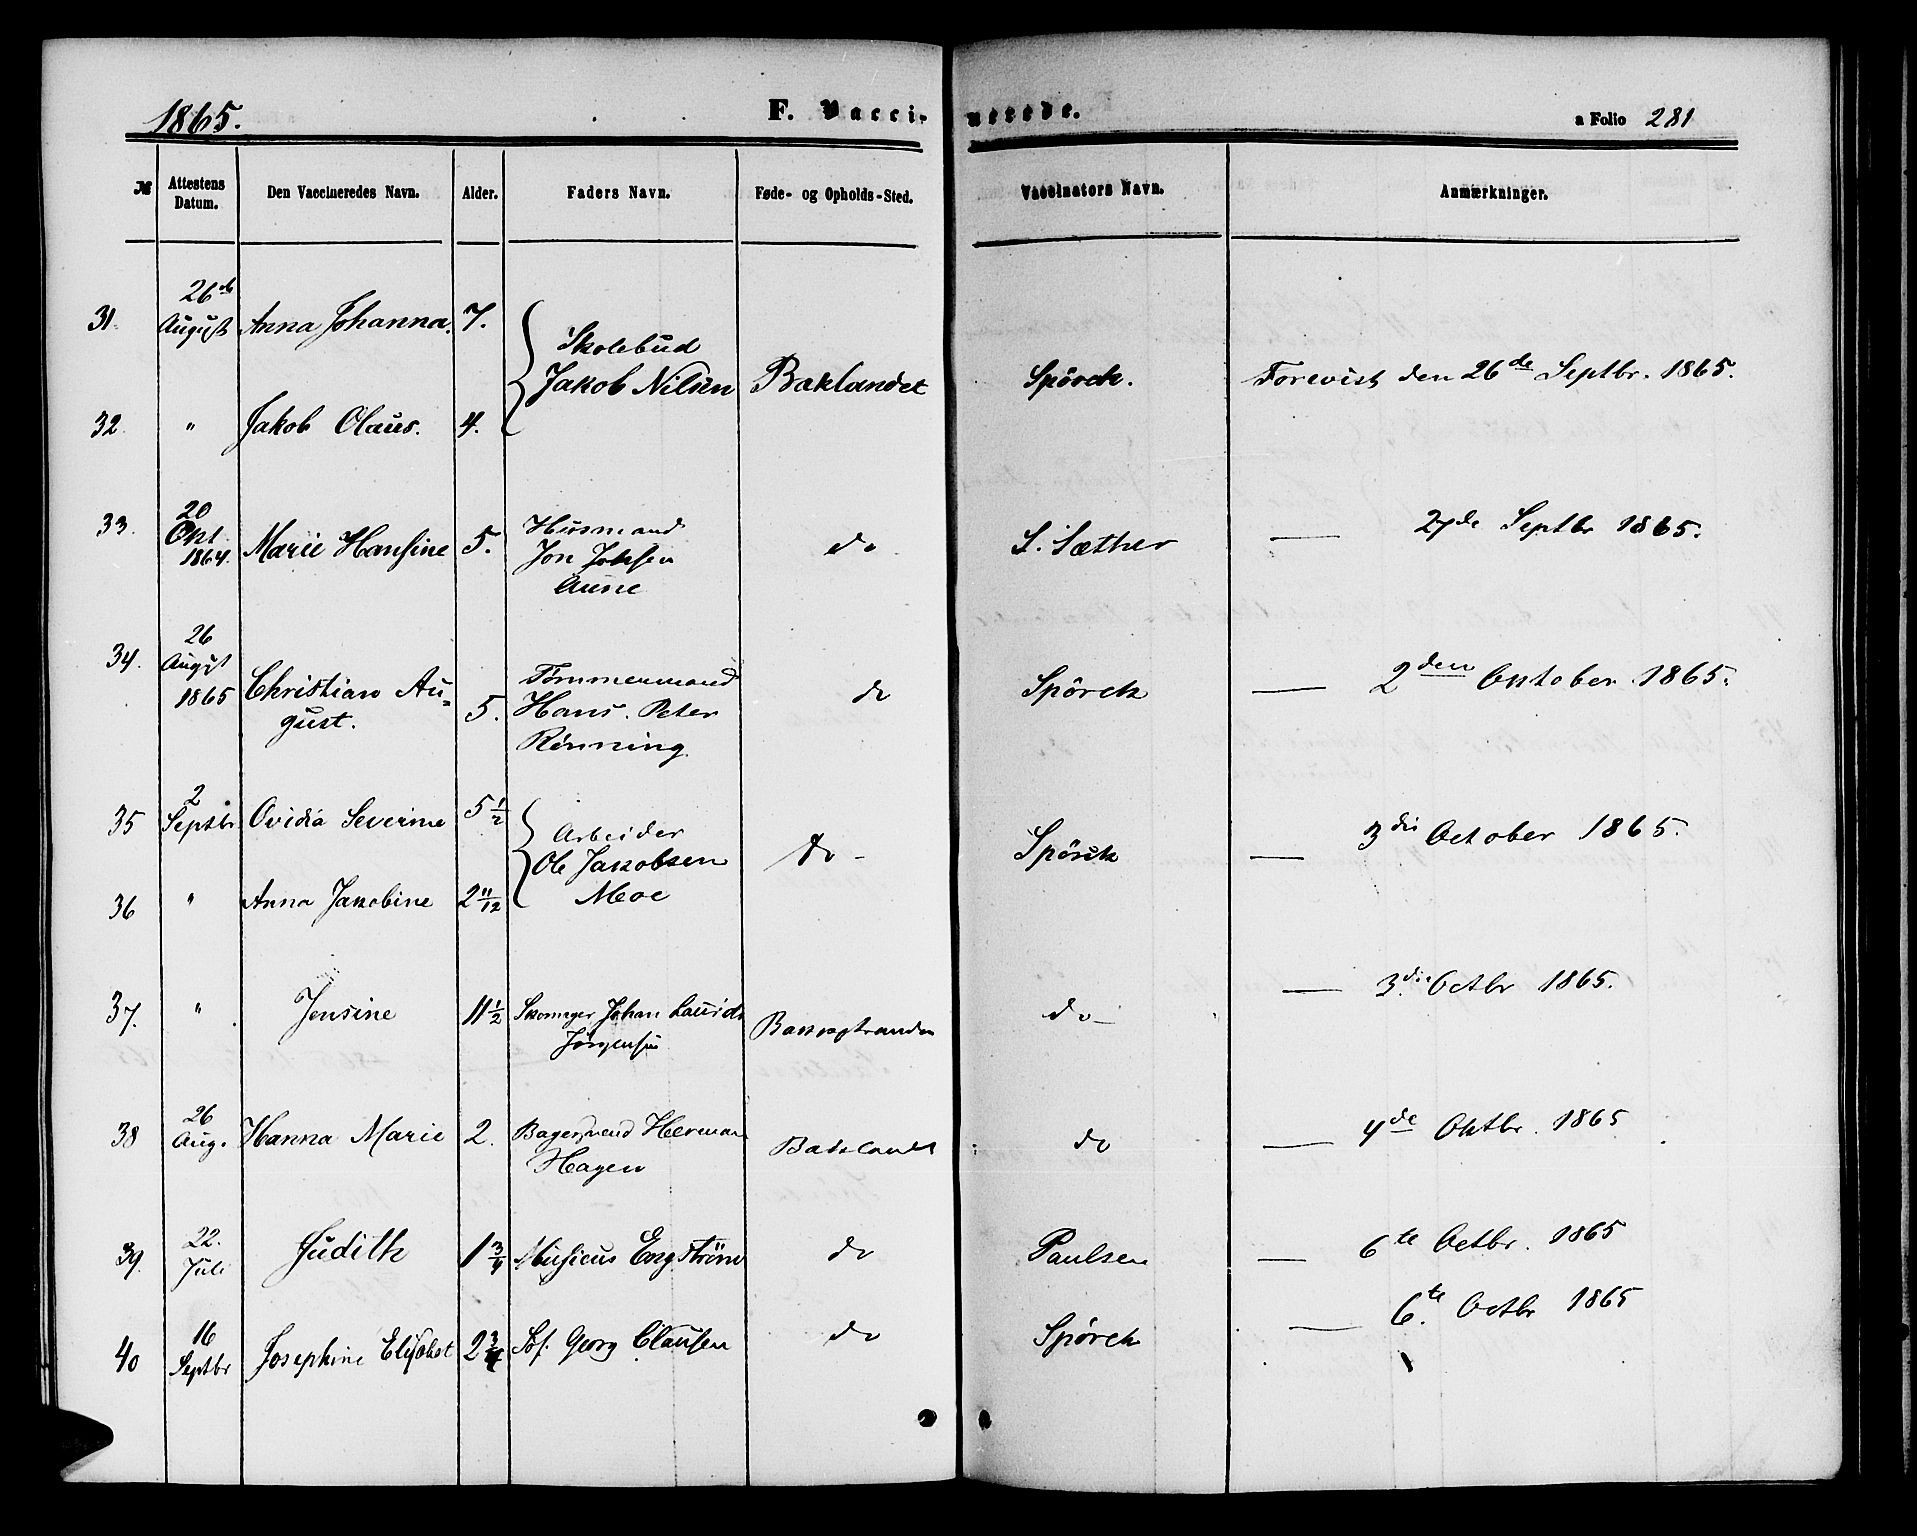 1865. F. Vaccinerede. a Folio 281
№ Attestens Datum. Den Vaccineredes Navn. Alder. Faders Navn. Føde- og Opholds-Sted. Vaccinators Navn. Anmærkninger.
31. 26de August Anna Johanna. 7. Skolebud Jakob Nilsen Baklandet Spörck. Forevist den 26de Septbr. 1865.
32. " Jakob Olaus. 4.
33. 20 Okt. 1864. Marie Hansine 5. Husmand Jon Johsen Aune do S. Sæther — 27de Septbr 1865.
34. 26 August 1865 Christian August. 5. Tömmermand Hans Peter Rönning do Spörck — 2den Oktober 1865.
35 2 Septbr Ovidia Severine 5 1/2 Arbeider Ole Jakobsen Moe do Spörck — 3die October 1865.
36 " Anna Jakobine 2 11/12
37. " Jensine 11 1/2 Johan Laurids Jörgensen do — 3die Octbr 1865.
38 26 Aug. Hanna Marie 2. Bagersvend Herman Hagen Baklandt do — 4de Oktbr. 1865
39. 22. Juli Judith 1 3/4 Musicus Engström do Paulsen — 6te Octbr. 1865
40 16 Septbr Josephine Elisabet 2 3/4 Georg Clausen do Spörck — 6te Octbr 1865